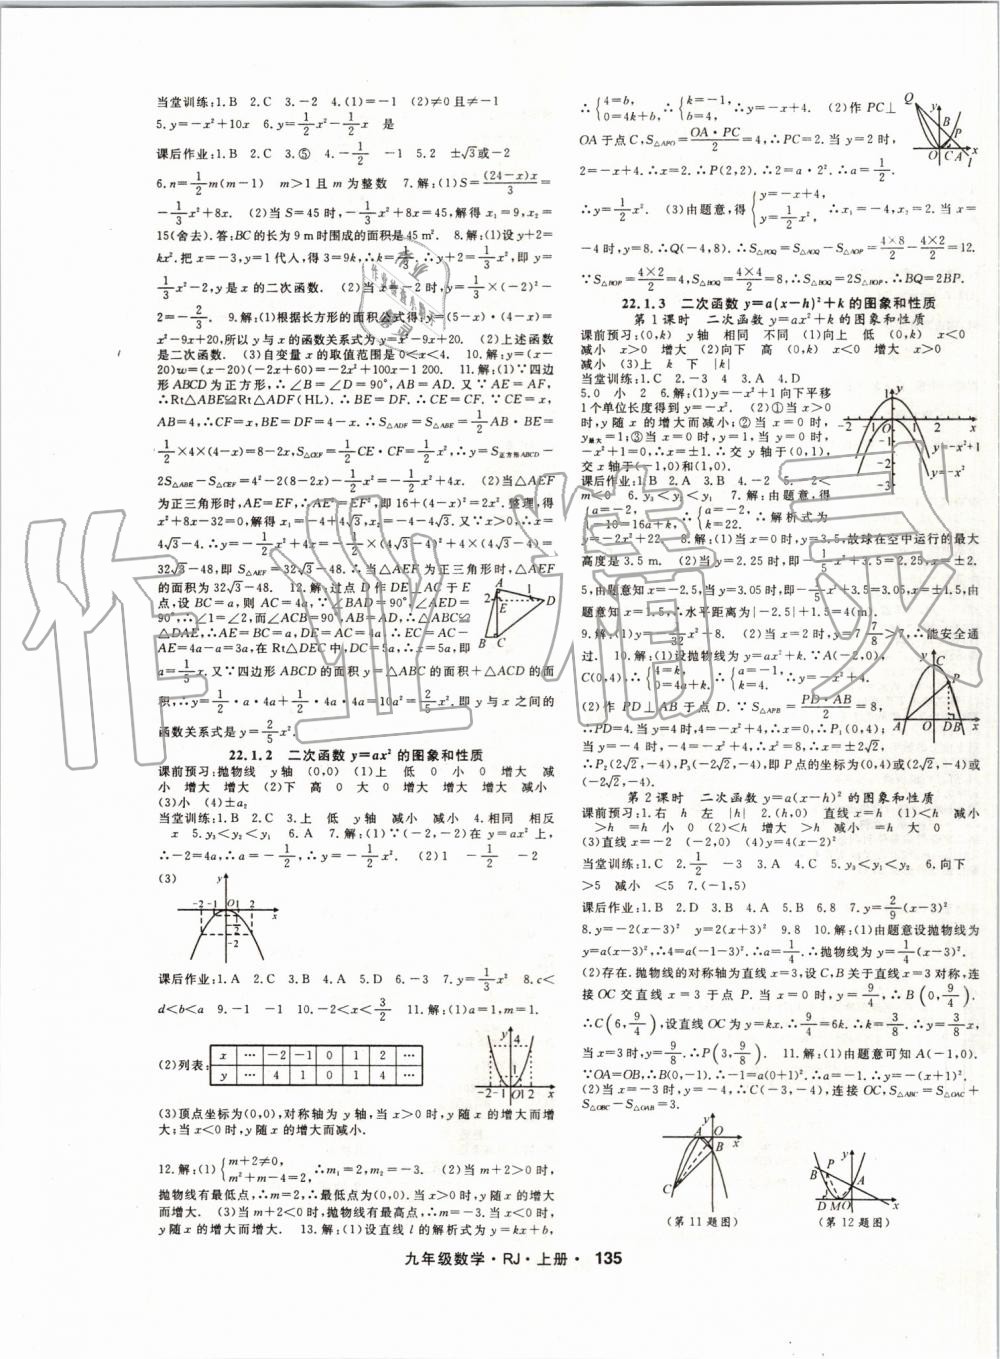 当堂训练:1.B 2.C 3.-2 4.(1)=-1 (2)≠0且≠-1
5.y=-x²+10x 6.y=1/2x²-1/2x 是
课后作业:1.B 2.C 3.⑤ 4.-1/2 -1 5.2 ±√3或-2
6.n=1/2m(m-1) m>1且m为整数 7.解:(1)S=(24-x)x/3=
-1/3x²+8x. (2)当S=45时,-1/3x²+8x=45,解得x₁=9,x₂=
15(舍去).答:BC的长为9 m时围成的面积是45 m². 8.解:(1)设y+2=
kx².把x=-3,y=1代入,得3=9k,∴k=1/3.∴y+2=1/3x²,即y=
1/3x²-2,y是x的二次函数. (2)当x=-2时,y=1/3×(-2)²-
2=-2/3. 9.解:(1)根据长方形的面积公式得:y=(5-x)·(4-x)=
x²-9x+20,所以y与x的函数关系式为y=x²-9x+20. (2)上述函数
是二次函数. (3)自变量x的取值范围是0<x<4. 10.解:w=(x-
20)w=(x-20)(-2x+60)=-2x²+100x-1 200. 11.解:(1)∵四边
形ABCD为正方形,∴∠B=∠D=90°,AB=AD.又∵AE=AF,
∴Rt△ABE≌Rt△ADF(HL).∴BE=DF.∴CE=CF.∵CE=x,
AB=4,∴CF=x,BE=DF=4-x.∴S△ADF=S△ABE=1/2AB·BE=
1/2×4×(4-x)=8-2x,S△CEF=1/2CE·CF=1/2x²,∴y=S正方形ABCD-
2S△ABE-S△CEF=4²-2(8-2x)-1/2x²=-1/2x²+4x. (2)当△AEF
为正三角形时,AE=EF,∴AE²=EF²,即16+(4-x)²=2x².整理,得
x²+8x-32=0,解得x₁=-4+4√3,x₂=-4-4√3.又∵x>0,∴x=
4√3-4.∴y=-1/2x²+4x=-1/2×(4√3-4)²+4×(4√3-4)=
32√3-48,即S△AEF=32√3-48.∴当△AEF为正三角形时,△AEF
的面积为32√3-48. 12.解:过点D作DE⊥AC于E
点,设BC=a,则AC=4a,∵∠BAD=90°,∠AED=
90°,∴∠1=∠2,而∠ACB=90°,AB=AD,∴△ABC≌
△DAE,∴AE=BC=a,DE=AC=4a,∴CE=AC-
AE=4a-a=3a,在Rt△DEC中,DC=5a,∴x=5a,即
a=1/5x.又∵四边形ABCD的面积y=△ABC的面积+△ACD的面
积,∴y=1/2·a·4a+1/2·4a·4a=10a²=2/5x².即y与x之间的
函数关系式是y=2/5x².
22.1.2 二次函数y=ax²的图象和性质
课前预习:抛物线 y轴 (0,0) (1)上 低 0 小 0 增大 减
小 增大 增大 (2)下 高 0 大 0 增大 增大 增大 减小
(3)小 (4)±a₂
当堂训练:1.D 2.C 3.上 低 y轴 减小 减小 4.相同 相反
x 5.y₃<y₂<y₁ 6.A 7.解:(1)∵(-2,-2)在y=ax²上,
∴-2=4a,∴a=-1/2,∴y=-1/2x². (2)1 -1/2 -2
(3)
课后作业:1.A 2.C 3.B 4.A 5.D 6.-3 7.y=1/3x² 8.c<
d<b<a 9.-1 -1 10.-2<x<3/2 11.解:(1)a=1,m=1.
(2)列表:
x … -2 -1 0 1 2 …
y … 4 1 0 1 4 …
(3)顶点坐标为(0,0),对称轴为y轴,当x>0时,y随x的增大而增
大;当x<0时,y随x的增大而减小.
12.解:(1){m+2≠0, m²+m-4=2, ∴m₁=2,m₂=-3. (2)当m+2>0时,
抛物线有最低点,∴m=2,∴最低点为(0,0).当x>0时,y随x的增大
而增大. (3)当m+2<0时,抛物线有最高点,∴m=-3.当x<0时,
y随x的增大而增大. 13.解:(1)设直线l的解析式为y=kx+b,
∴{4=b, 0=4k+b, ∴{k=-1, b=4, ∴y=-x+4. (2)作PC⊥
OA于点C,S△APO=OA·PC/2=4,∴PC=2.当y=2时,
2=-x+4.∴x=2.∴P(2,2).∴2=a·2².∴a=1/2.
∴y=1/2x². (3)由题意,得{y=-x+4, y=1/2x², ∴x₁=-4,x₂=2.当x=
-4时,y=8.∴Q(-4,8).∴S△POQ=S△AOQ-S△AOP=4×8/2-4×2/2=12.
∵S△BOP=4×2/2=4,S△BOQ=4×4/2=8.∴S△BOQ=2S△BOP.∴BQ=2BP.
22.1.3 二次函数y=a(x-h)²+k的图象和性质
第1课时 二次函数y=ax²+k的图象和性质
课前预习:(0,k) y轴 相同 不同 (1)向上 低 (0,k) x<0
减小 x>0 增大 (2)向下 高 (0,k) x<0 增大 x>0
减小 (3)上 k 下 |k|
当堂训练:1.C 2.-3 4 3.A 4.D
5.0 小 2 6.解:(1)y=-x²+1向下平移
1个单位长度得到y=-x². (2)①当x>0
时,y随x的增大而减小;②当x=0时,
y最大=1;③当x=0时,y=1,当y=0时,
-x²+1=0,∴x=±1.∴交y轴于(0,1),
交x轴于(-1,0)和(1,0).
课后作业:1.B 2.A 3.B 4.-2 5.-2<
m<0 6.y₃<y₂<y₁ 7.解:由题意,得
{a=-2, -10=16a+k, ∴{a=-2, k=22. ∴解析式为
y=-2x²+22 8.解:(1)当x=0时,y=3.5,故球在空中运行的最大
高度是3.5 m. (2)当y=2.25时,即-1/5x²+3.5=2.25,x=±2.
5,由题意知x=-2.5,当y=3.05时,即-1/5x²+3.5=3.05,x=±1.5,由
题意知x=1.5,∴水平距离为|-2.5|+1.5=4(m).
9.解:(1)y=-x²/32+8. (2)当x=2时,y=7 7/8>7,∴能安全通
过. 10.解:(1)设抛物线为y=ax²+k.∵A(-2,0),
C(0,4),∴{k=4, 0=4a+k, ∴{a=-1, k=4. ∴y=-x²+4.
(2)作PD⊥AB于点D.∵S△APB=PD·AB/2=8,
∴PD=4.当y=4时,-x²+4=4,∴x=0,∴P₁(0,4);
当y=-4时,-x²+4=-4,∴x²=8.∴x=±2√2,
∴P₂(2√2,-4),P₃(-2√2,-4),即P点的坐标为(0,4)或(2√2,-4)或
(-2√2,-4).
第2课时 二次函数y=a(x-h)²的图象和性质
课前预习:1.右 h 左 |h| 2.(h,0) 直线x=h (1)<h 减小
>h =h 小 0 (2)<h 增大 >h 减小 =h 大 0
(3)直线x=-2 (-2,0) (4)y=4(x-2)²
当堂训练:1.C 2.1/2 -3 3.A 4.C 5.y₃<y₁<y₂ 6.向下
>5 减小 <5 7.(-1,5)
课后作业:1.B 2.D 3.B 4.A 5.B 6.8 7.y=2/9(x-3)²
8.y=-2(x-3)² y=2(x+3)² 9.8 10.解:(1)由题意设抛物线为
y=a(x-3)²,∴4=a(-1-3)².∴a=1/4.∴抛物线为y=1/4(x-3)².
(2)存在.抛物线的对称轴为直线x=3,设C、B关于直线x=3对称,连
接OC交直线x=3于点P.当x=0时,y=9/4,∴B(0,9/4).
∴C(6,9/4),设直线OC为y=kx.∴9/4=6k.∴k=3/8.∴y=3/8x,
当x=3时,y=9/8.∴P(3,9/8). 11.解:(1)由题意可知A(-1,0).
∵OA=OB,∴B(0,-1).∴-1=a(0+1)²,∴a=-1.∴y=-(x+1)².
(2)当x=-3时,y=-4,∴C(-3,-4),连接OC,S△ABC=S△OAC+
S△OBC-S△OAB=3.
(第11题图) (第12题图)
九年级数学·RJ·上册· 135